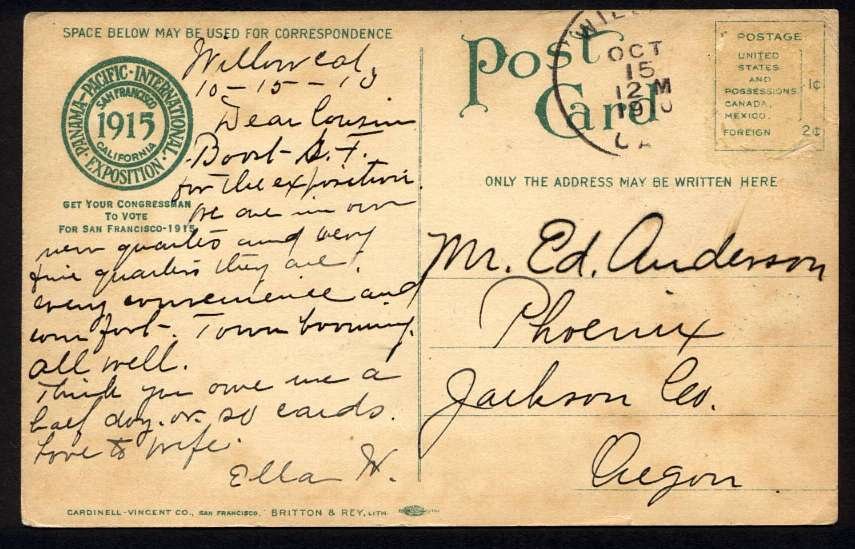 SPACE BELOW MAY BE USED FOR CORRESPONDENCE
PANAMA-PACIFIC-INTERNATIONAL EXPOSITION
SAN FRANCISCO
1915
CALIFORNIA
GET YOUR CONGRESSMAN
TO VOTE
FOR SAN FRANCISCO-1915
Willow Cal,
10-15-10
Dear Cousin
Boost S.F.
for the exposition.
We are in our
new quarters and very
fine quarters they are
every convenience and
comfort. Town booming.
all well.
Think you owe me a
half doz. or so cards.
Love to wife.
Ella W.
CARDINELL-VINCENT CO., SAN FRANCISCO.
BRITTON & REY, LITH.
Post
Card
OCT
15
12 M
CA
POSTAGE
UNITED
STATES
AND
POSSESSIONS 1¢
CANADA,
MEXICO.
FOREIGN 2¢
ONLY THE ADDRESS MAY BE WRITTEN HERE
Mr. Ed. Anderson
Phoenix
Jackson Co.
Oregon